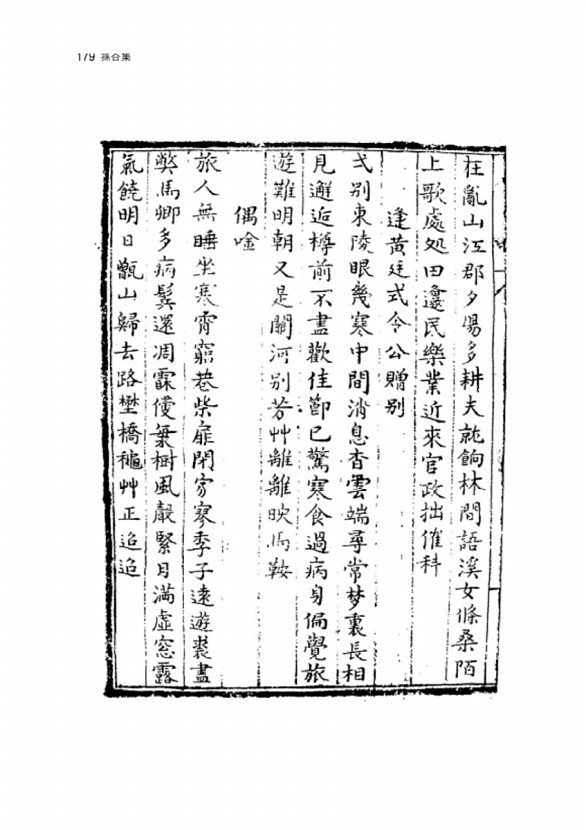 179 孫合集
在亂山江郡夕陽多耕夫就餉林間語溪女條桑陌
上歌處処田邊民樂業近來官政拙催科
逢黃廷式令公贈别
弌别東陵眼幾寒中間消息杳雲端尋常梦裏長相
見邂逅樽前不盡歡佳節已驚寒食過病身偏覺旅
遊難明朝又是關河别芳艸離離映馬鞍
偶唫
旅人無睡坐寒宵窮巷柴扉閉寥季子遠遊裘盡
獘馬卿多病鬂還凋霖樹風聲緊月滿虛窓露
氣饒明日甑山歸去路壄橋穐艸正迢迢